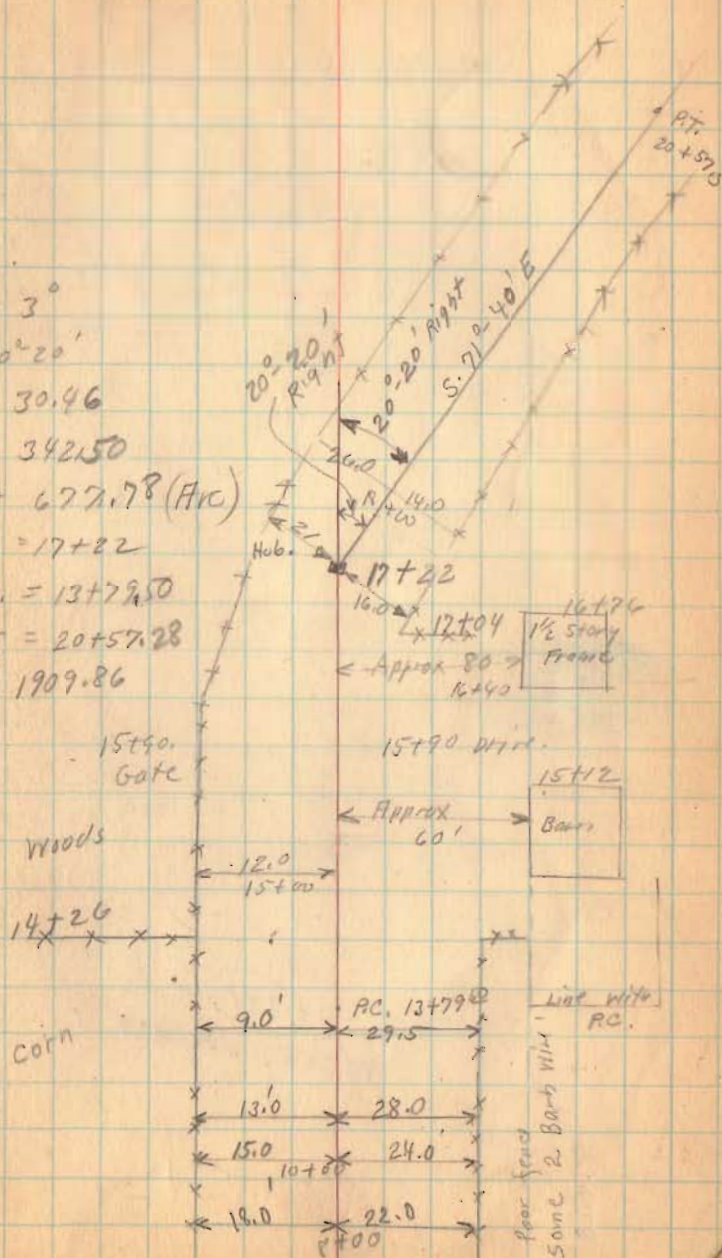 P.T.
20+57.
3°
0°-20'
30.46
342.50
677.78 (Arc)
= 17+22
. = 13+79.50
= 20+57.28
1909.86
20°-20' Right
20°-20' Right
S. 71°-40' E
26.0
14.0
21
Hub.
17+22
16.0
17+04
16+76
1½ Story
Frame
Approx 80
16+40
15+90.
Gate
15+90 Drive.
15+12
Barn
Approx
60'
Woods
12.0
15+00
14+26
P.C. 13+79
9.0'
29.5
Line With
P.C.
Corn
13.0
28.0
15.0
24.0
10+00
18.0
22.0
8+00
Poor fence
Some 2 Barb Wire